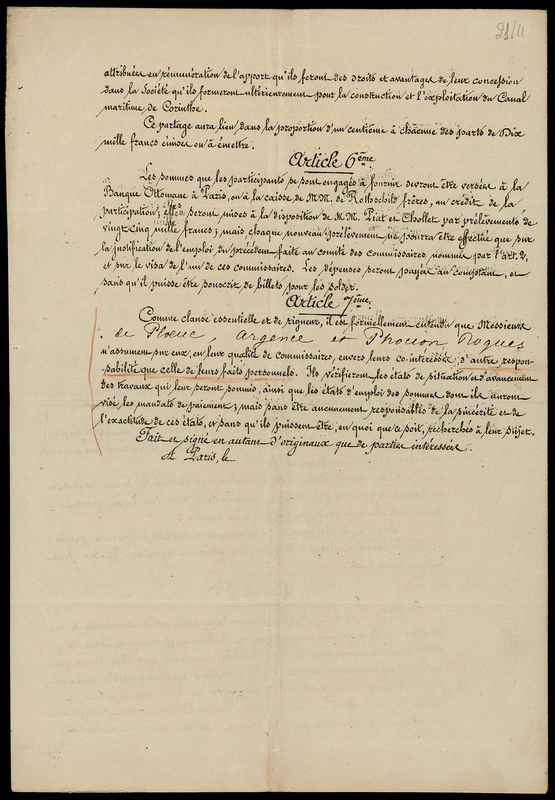 21/11
attribuées en rémunération de l'apport qu'ils feront des droits et avantages de leur concession
dans la Société qu'ils formeront ultérieurement pour la construction et l'exploitation du Canal
maritime de Corinthe.
Ce partage aura lieu dans la proportion d'un centième à chacune des parts de Dix
mille francs émises ou à émettre.
Article 6ème
Les sommes que les participants se sont engagés à fournir devront être versées à la
Banque Ottomane à Paris, ou à la caisse de M.M. de Rothschild frères, au crédit de la
participation; elles seront mises à la disposition de M.M. Piat et Chollet par prélèvements de
vingt cinq mille francs; mais chaque nouveau prélèvement ne pourra être effectué que sur
la justification de l'emploi du précédent faite au comité des commissaires nommés par l'art. 2,
et sur le visa de l'un de ces commissaires. Les dépenses seront payées au comptant, et
sans qu'il puisse être souscrit de billets pour les solder.
Article 7ème
Comme clause essentielle et de rigueur, il est formellement entendu que Messieurs
de Ploeuc, Argence et Phocion Roques
n'assument sur eux, en leur qualité de commissaires, envers leurs co-intéressés, d'autre respon-
sabilité que celle de leurs faits personnels. Ils vérifieront les états de situation et d'avancement
des travaux qui leur seront soumis, ainsi que les états d'emploi des sommes dont ils auront
visé les mandats de paiement; mais sans être aucunement responsables de la sincérité et de
l'exactitude de ces états, et sans qu'ils puissent être, en quoi que ce soit, recherchés à leur sujet.
Fait et signé en autant d'originaux que de parties intéressées.
A Paris, le